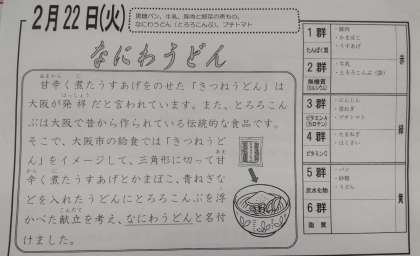 2月22日(火)
黒糖パン、牛乳、鶏肉と野菜の煮もの、
なにわうどん(とろろこんぶ)、プチトマト
なにわうどん
甘辛く煮たうすあげをのせた「きつねうどん」は
大阪が発祥だと言われています。また、とろろこん
ぶは大阪で昔から作られている伝統的な食品です。
そこで、大阪市の給食では「きつねうど
ん」をイメージして、三角形に切って甘
辛く煮たうすあげとかまぼこ、青ねぎな
どを入れたうどんにとろろこんぶを浮
かべた献立を考え、なにわうどんと名付
けました。
1群
たんぱく質
・鶏肉
・かまぼこ
・うすあげ
2群
無機質
(カルシウム)
・牛乳
・とろろこんぶ
3群
ビタミンA
(カロテン)
・にんじん
・青ねぎ
・プチトマト
4群
ビタミンC
・たまねぎ
・はくさい
5群
炭水化物
・パン
・砂糖
・うどん
6群
脂質
赤
緑
黄